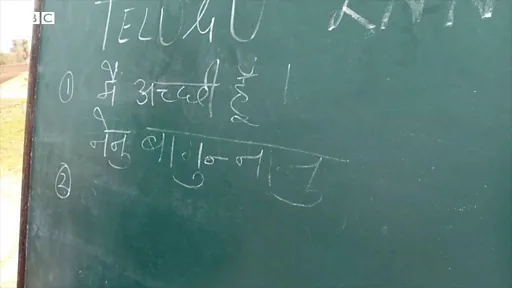 BBC
TELUGU
① मैं अच्छी हूँ ।
नेनु बागुन्नानु
②